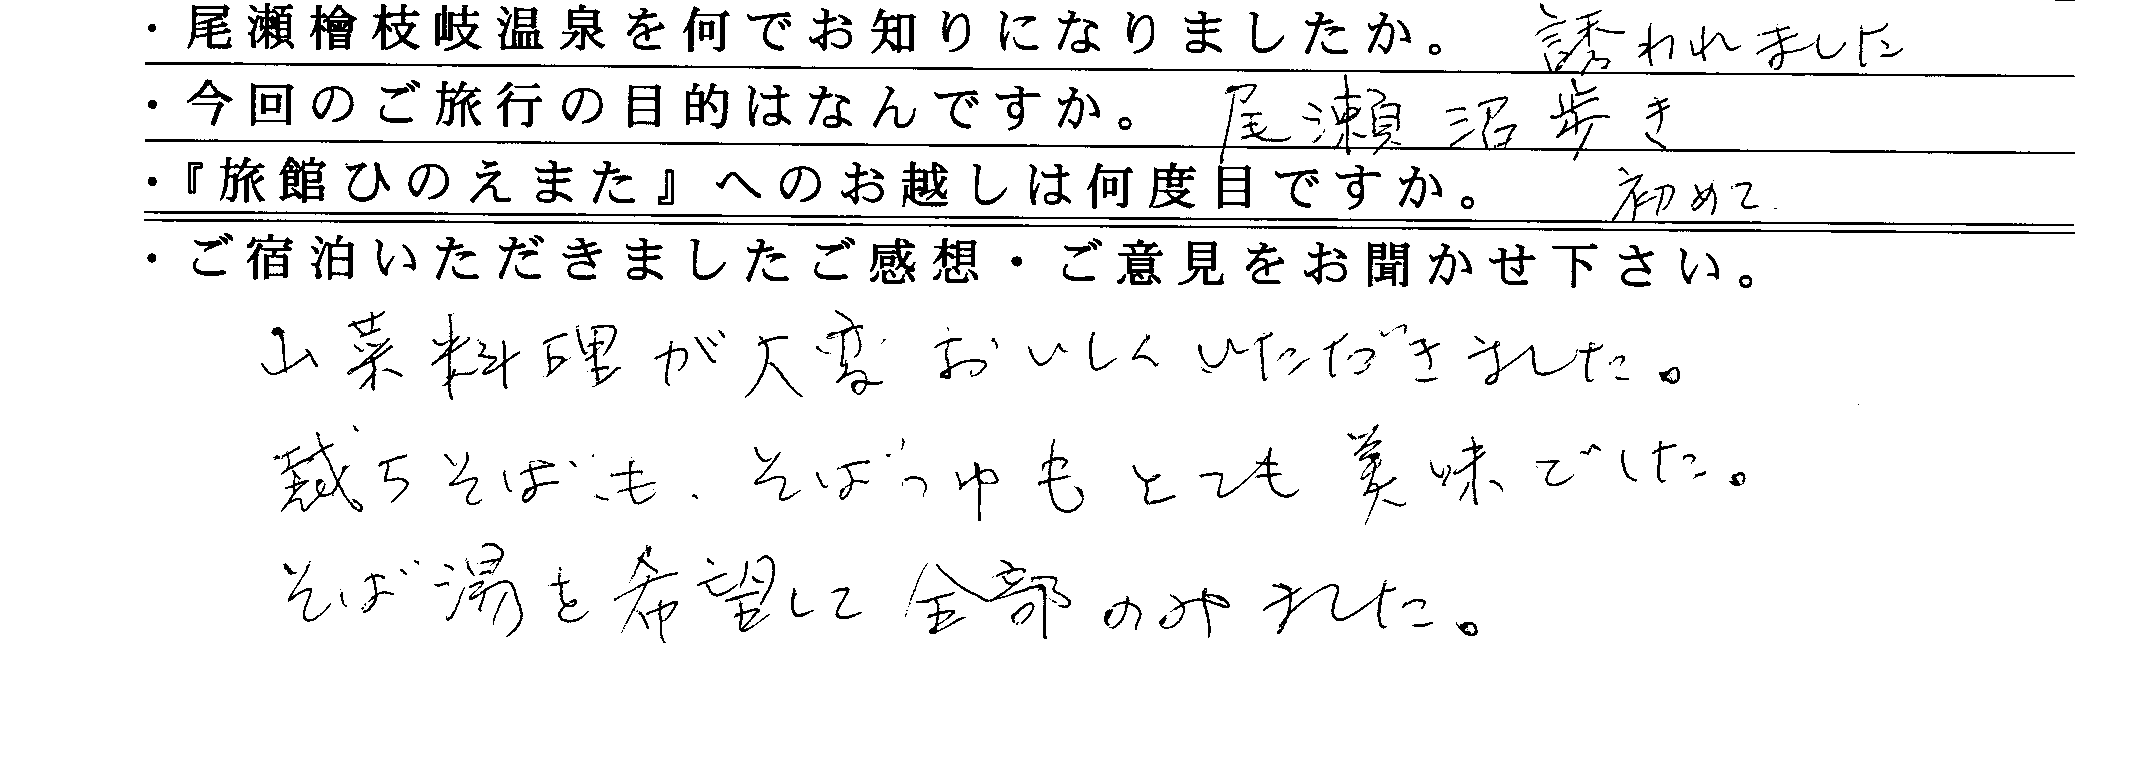 ・尾瀬檜枝岐温泉を何でお知りになりましたか。 誘われました
・今回のご旅行の目的はなんですか。 尾瀬沼歩き
・『旅館ひのえまた』へのお越しは何度目ですか。 初めて
・ご宿泊いただきましたご感想・ご意見をお聞かせ下さい。
山菜料理が大変おいしくいただきました。
裁ちそばも、そばつゆもとても美味でした。
そば湯を希望して全部のみました。